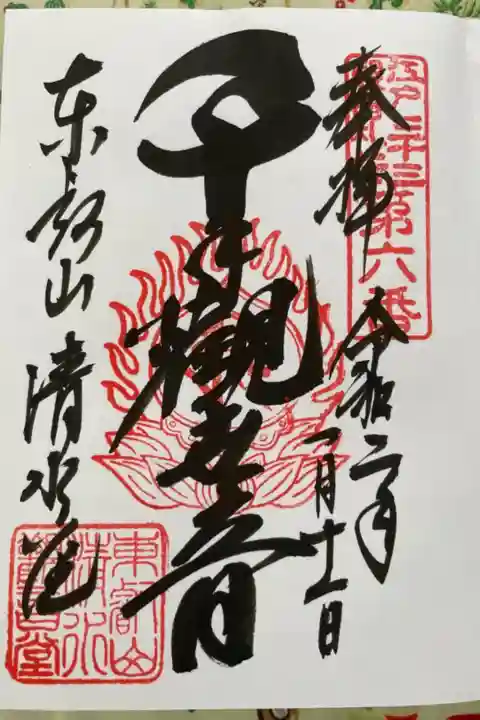 奉拝
江戸三十三
第六番
令和二年
一月十一日
千手観世音
東叡山
清水堂
東叡山
清水
観音堂